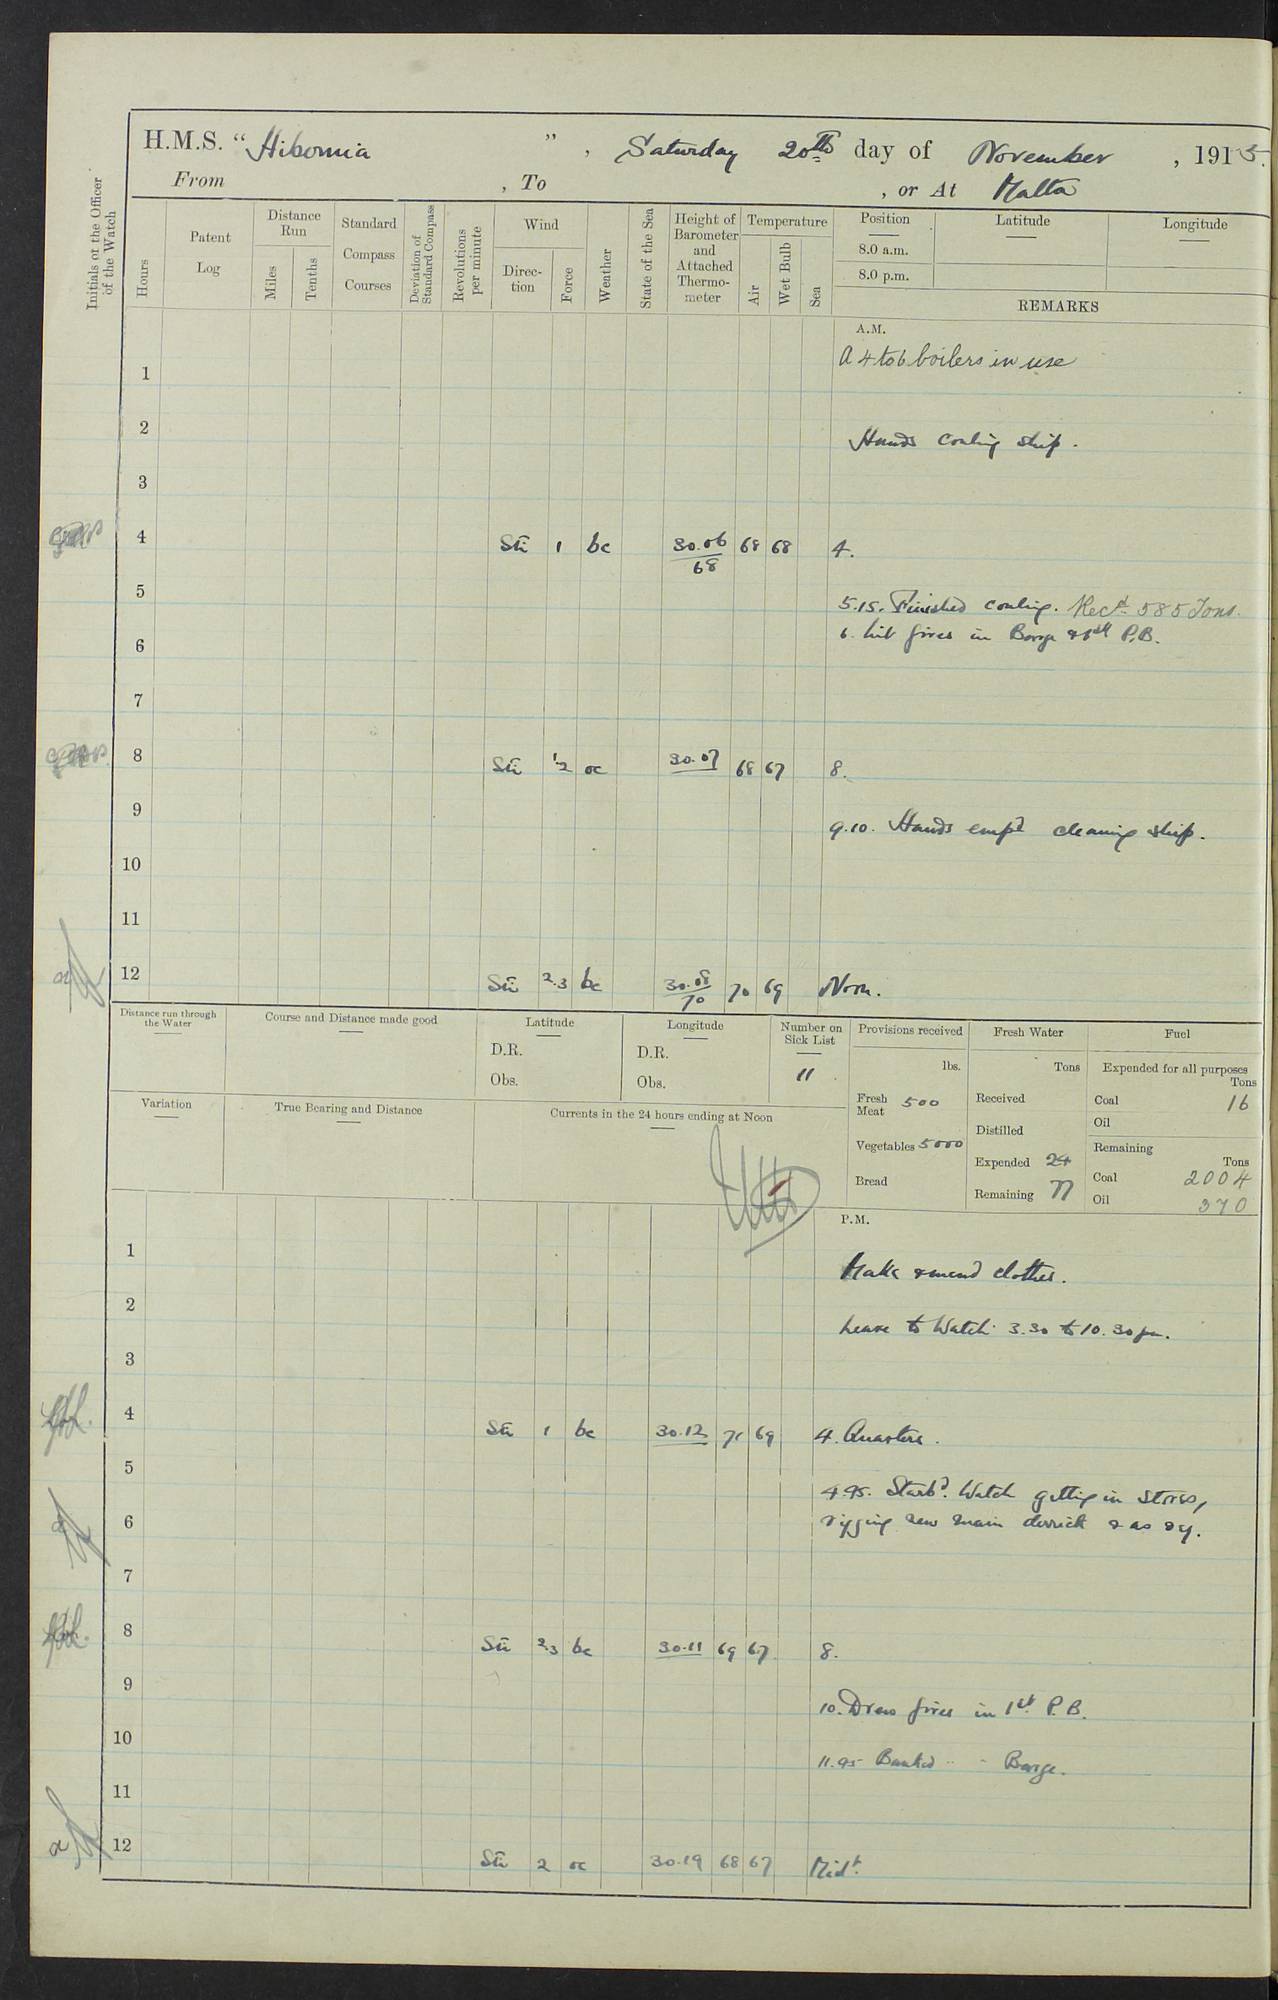 H.M.S. “Hibernia”, Saturday 20th day of November, 1915.
From , To , or At Malta
Initials of the Officer of the Watch
Hours
Patent Log
Distance Run
Miles
Tenths
Standard Compass Courses
Deviation of Standard Compass
Revolutions per minute
Wind
Direction
Force
Weather
State of the Sea
Height of Barometer and Attached Thermometer
Temperature
Air
Wet Bulb
Sea
Position Latitude Longitude
8.0 a.m.
8.0 p.m.
REMARKS
A.M.
4 to 6 boilers in use
1
2 Hands coaling ship.
3
4 1 bc 30.06/68 68 68 4.
5 5.15. Finished coaling. Recd. 585 Tons.
6. Lit fires in Barge & 1st P.B.
6
7
8 1.2 oc 30.07 68 67 8.
9 9.10. Hands empd cleaning ship.
10
11
12 2.3 bc 30.08/70 70 69 Noon.
Distance run through the Water
Course and Distance made good
Latitude
D.R.
Obs.
Longitude
D.R.
Obs.
Number on Sick List
11
Provisions received
lbs.
Fresh Meat 500
Vegetables 5000
Bread
Fresh Water
Tons
Received
Distilled
Expended 24
Remaining 77
Fuel
Expended for all purposes
Tons
Coal 16
Oil
Remaining
Tons
Coal 2004
Oil 370
Variation
True Bearing and Distance
Currents in the 24 hours ending at Noon
P.M.
1 Make & mend clothes.
2 Leave to Watch 3.30 to 10.30 pm.
3
4 1 bc 30.12 71 69 4. Quarters.
5 4.45. Starbd. Watch getting in stores,
6 rigging new main derrick & as rq.
7
8 2.3 bc 30.11 69 67 8.
9 10. Drew fires in 1st P.B.
10 11.45 Banked " " Barge.
11
12 2 oc 30.19 68 67 Midt.